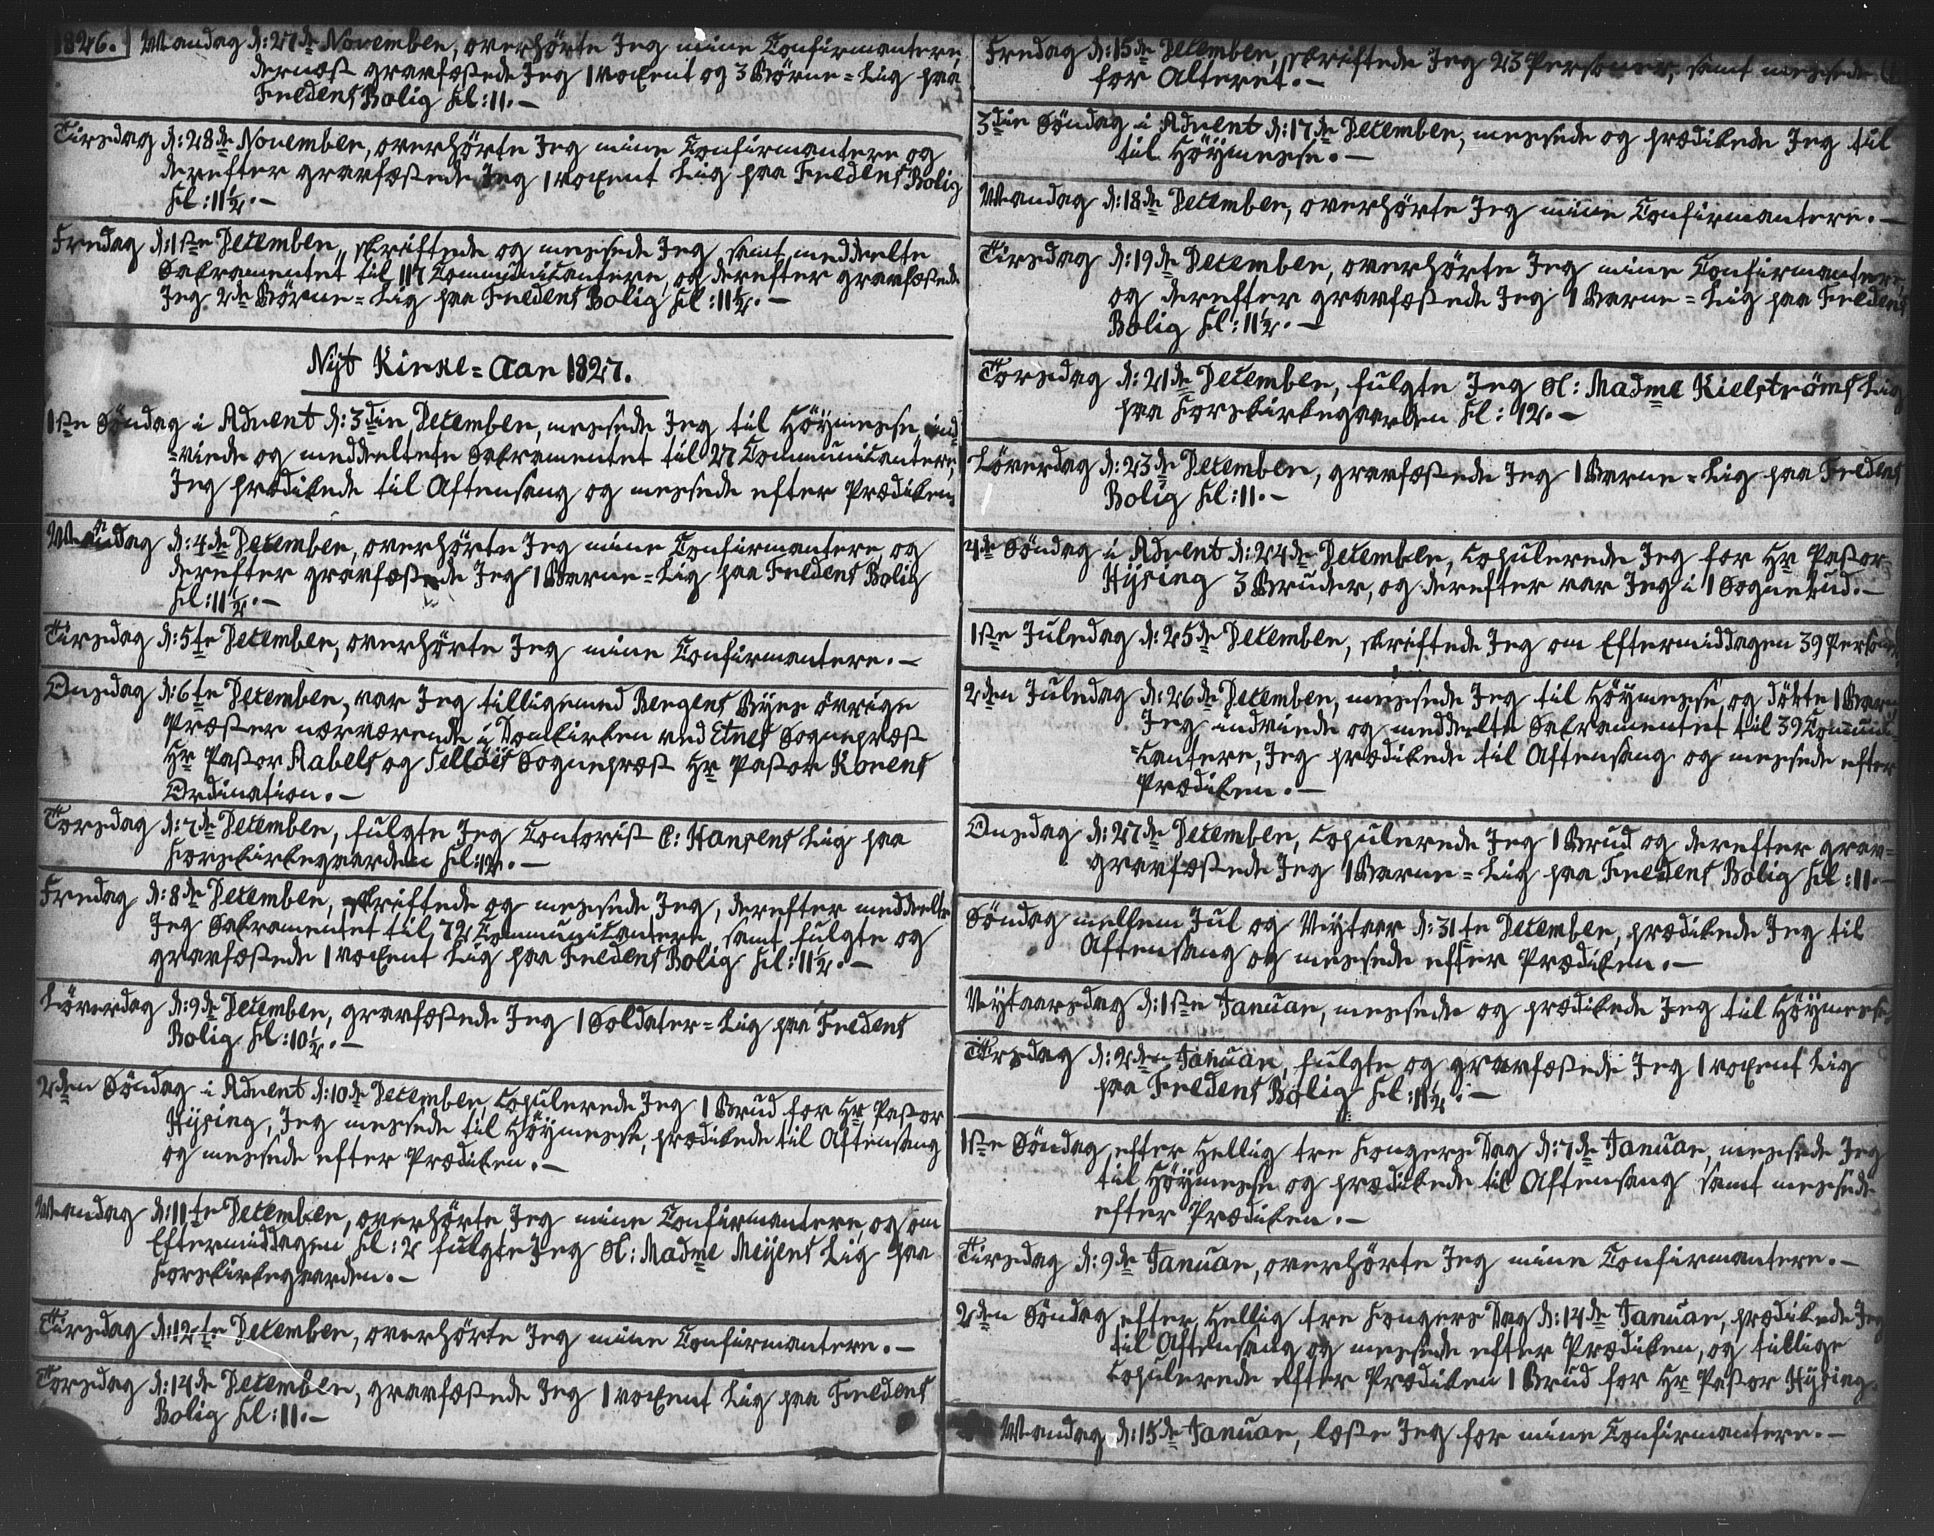 1826. Mandag d: 27de November, overhørte Jeg mine Confirmantere,
dernæst gravfæstede Jeg 1 voxent og 3 Børne=Lig paa
Fredens Bolig kl: 11.—
Tirsdag d: 28de November, overhørte Jeg mine Confirmantere og
derefter gravfæstede Jeg 1 voxent Liig paa Fredens Bolig
kl: 11½.—
Fredag d: 1ste December, skriftede og messede Jeg samt meddeelte
Sakramentet til 117 Communicantere, og derefter gravfæstede
Jeg 2de Børne=Lig paa Fredens Bolig kl: 11½.—
Nyt Kirke=Aar 1827.
1ste Søndag i Advent d: 3die December, messede Jeg til Høymesse, ind=
=viede og meddeeltete Sakramentet til 27 Communicantere,
Jeg prædikede til Aftensang og messede efter Prædiken.
Mandag d: 4de December, overhørte Jeg mine Confirmantere og
derefter gravfæstede Jeg 1 Barne=Lig paa Fredens Bolig
kl: 11½.—
Tirsdag d: 5te December, overhørte Jeg mine Confirmantere.—
Onsdag d: 6te December, var Jeg tilligemed Bergens Byes øvrige
Præster nærværende i Domkirken ved Etnes Sognepræst
Hr Pastor Aabels ogSelløis Sognepræst Hr Pastor Korens
Ordination.—
Torsdag d: 7de December, fulgte Jeg Contorist C: Hansens Liig paa
Korskirkegaarden kl: 12.—
Fredag d: 8de December, skriftede og messede Jeg, derefter meddeelte
Jeg Sakramentet til 72 Communicantere, samt fulgte og
gravfæstede 1 voxent Lig paa Fredens Bolig kl: 11½.—
Løverdag d: 9de December, gravfæstede Jeg 1 Soldater=Lig paa Fredens
Bolig kl: 10½.—
2den Søndag i Advent d: 10de December, Copulerede Jeg 1 Brud for Hr Pastor
Hysing, Jeg messede til Høymesse, prædikede til Aftensang
og messede efter Prædiken.—
Mandag d: 11te December, overhørte Jeg mine Confirmantere, og om
Eftermiddagen kl: 2 fulgte Jeg Sl: Madme Meyers Lig paa
Korskirkegaarden.—
Tirsdag d: 12te December, overhørte Jeg mine Confirmantere.—
Torsdag d: 14de December, gravfæstede Jeg 1 voxent Lig paa Fredens
Bolig kl: 11.—
Fredag d: 15de December, skriftede Jeg 23 Personer, samt messede
for Alteret.—
3die Søndag i Advent d: 17de December, messede og prædikede Jeg til
til Høymesse.—
Mandag d: 18de December, overhørte Jeg mine Confirmantere.—
Tirsdag d: 19de December, overhørte Jeg mine Confirmantere,
og derefter gravfæstede Jeg 1 Barne=Liig paa Fredens
Bolig kl: 11½.—
Torsdag d: 21de December, fulgte Jeg Sl: Madme Kielstrøms Lig
paa Korskirkegaarden kl: 12.—
Løverdag d: 23de December, gravfæstede Jeg 1 Barne=Lig paa Fredens
Bolig kl: 11.—
4de Søndag i Advent d: 24de December, Copulerede Jeg for Hr Pastor
Hysing 3 Bruder, og derefter var Jeg i 1 Sognebud.—
1ste Juledag d: 25de December, skriftede Jeg om Eftermiddagen 39 Personer
2den Juledag d: 26de December, messede Jeg til Høymesse, og døbte 1 Barn
Jeg indviede og meddeelte Sakramentet til 39 Communi=
=cantere, Jeg prædikede til Aftensang og messede efter
Prædiken.—
Onsdag d: 27de December, Copulerede Jeg 1 Brud og derefter grav=
gravfæstede Jeg 1 Barne=Liig paa Fredens Bolig kl: 11.—
Søndag mellem Jul og Nytaar d: 31te December, prædikede Jeg til
Aftensang og messede efter Prædiken.—
Nytaarsdag d: 1ste Januar, messede og prædikede Jeg til Høymesse.
Tirsdag d: 2den Januar, fulgte og gravfæstede Jeg 1 voxent Lig
paa Fredens Bolig kl: 11½.—
1ste Søndag efter Hellig tre Kongers Dag d: 7de Januar, messede Jeg
til Høymesse og prædikede til Aftensang samt messede
efter Prædiken.—
Tirsdag d: 9de Januar, overhørte Jeg mine Confirmantere.—
2den Søndag efter Hellig tre Kongers Dag d: 14de Januar, prædikede Jeg
til Aftensang og messede efter Prædiken, og tillige
Copulerede efter Prædiken 1 Brud for Hr Pastor Hysing.
Mandag d: 15de Januar, læste Jeg for mine Confirmantere.—